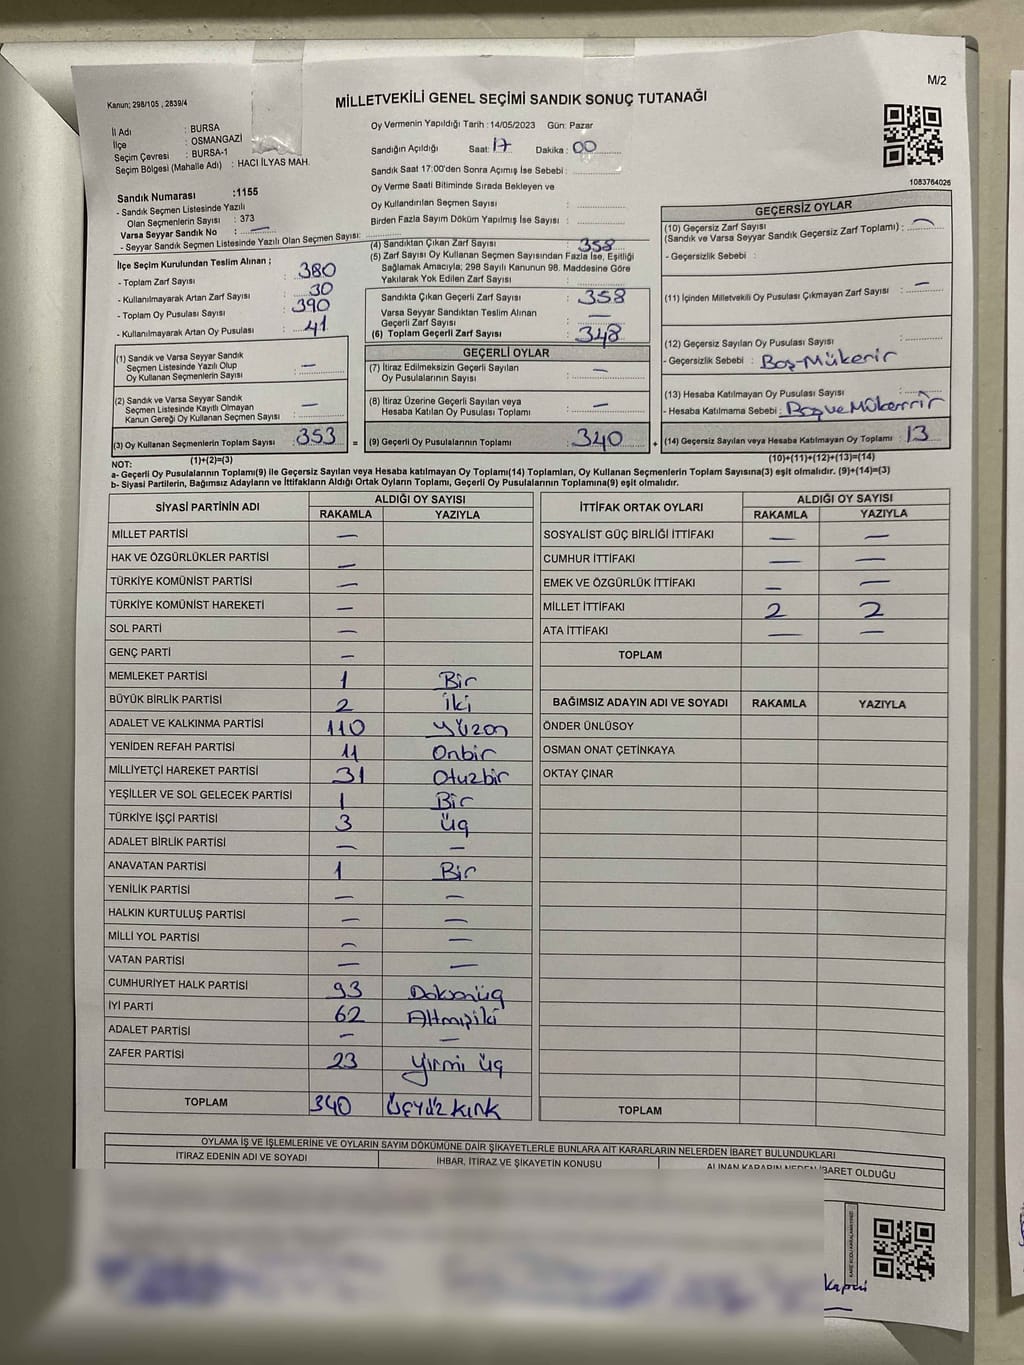 M/2
Kanun; 298/105 , 2839/4
MİLLETVEKİLİ GENEL SEÇİMİ SANDIK SONUÇ TUTANAĞI
İl Adı : BURSA
İlçe : OSMANGAZİ
Seçim Çevresi : BURSA-1
Seçim Bölgesi (Mahalle Adı) : HACI İLYAS MAH.
Oy Vermenin Yapıldığı Tarih : 14/05/2023 Gün: Pazar
Sandığın Açıldığı Saat: 17 Dakika : 00
Sandık Saat 17:00'den Sonra Açımış İse Sebebi :
Oy Verme Saati Bitiminde Sırada Bekleyen ve
Oy Kullandırılan Seçmen Sayısı :
Birden Fazla Sayım Döküm Yapılmış İse Sayısı :
1083764026
Sandık Numarası :1155
- Sandık Seçmen Listesinde Yazılı
Olan Seçmenlerin Sayısı : 373
Varsa Seyyar Sandık No : —
- Seyyar Sandık Seçmen Listesinde Yazılı Olan Seçmen Sayısı:
İlçe Seçim Kurulundan Teslim Alınan ;
- Toplam Zarf Sayısı : 380
- Kullanılmayarak Artan Zarf Sayısı : 30
- Toplam Oy Pusulası Sayısı : 390
- Kullanılmayarak Artan Oy Pusulası : 41
(1) Sandık ve Varsa Seyyar Sandık
Seçmen Listesinde Yazılı Olup
Oy Kullanan Seçmenlerin Sayısı : —
(2) Sandık ve Varsa Seyyar Sandık
Seçmen Listesinde Kayıtlı Olmayan
Kanun Gereği Oy Kullanan Seçmen Sayısı : —
(3) Oy Kullanan Seçmenlerin Toplam Sayısı : 353 =
(4) Sandıktan Çıkan Zarf Sayısı : 358
(5) Zarf Sayısı Oy Kullanan Seçmen Sayısından Fazla İse, Eşitliği
Sağlamak Amacıyla; 298 Sayılı Kanunun 98. Maddesine Göre
Yakılarak Yok Edilen Zarf Sayısı :
Sandıkta Çıkan Geçerli Zarf Sayısı : 358
Varsa Seyyar Sandıktan Teslim Alınan
Geçerli Zarf Sayısı : —
(6) Toplam Geçerli Zarf Sayısı : 348
GEÇERLİ OYLAR
(7) İtiraz Edilmeksizin Geçerli Sayılan
Oy Pusulalarının Sayısı : —
(8) İtiraz Üzerine Geçerli Sayılan veya
Hesaba Katılan Oy Pusulası Toplamı : —
(9) Geçerli Oy Pusulalarının Toplamı : 340 +
GEÇERSİZ OYLAR
(10) Geçersiz Zarf Sayısı
(Sandık ve Varsa Seyyar Sandık Geçersiz Zarf Toplamı) : —
- Geçersizlik Sebebi :
(11) İçinden Milletvekili Oy Pusulası Çıkmayan Zarf Sayısı : —
(12) Geçersiz Sayılan Oy Pusulası Sayısı :
- Geçersizlik Sebebi : Boş-Mükerir
(13) Hesaba Katılmayan Oy Pusulası Sayısı :
- Hesaba Katılmama Sebebi : Boş ve Mükerrir
(14) Geçersiz Sayılan veya Hesaba Katılmayan Oy Toplamı : 13
NOT: (1)+(2)=(3) (10)+(11)+(12)+(13)=(14)
a- Geçerli Oy Pusulalarının Toplamı(9) ile Geçersiz Sayılan veya Hesaba katılmayan Oy Toplamı(14) Toplamları, Oy Kullanan Seçmenlerin Toplam Sayısına(3) eşit olmalıdır. (9)+(14)=(3)
b- Siyasi Partilerin, Bağımsız Adayların ve İttifakların Aldığı Ortak Oyların Toplamı, Geçerli Oy Pusulalarının Toplamına(9) eşit olmalıdır.
SİYASİ PARTİNİN ADI ALDIĞI OY SAYISI
RAKAMLA YAZIYLA
MİLLET PARTİSİ —
HAK VE ÖZGÜRLÜKLER PARTİSİ —
TÜRKİYE KOMÜNİST PARTİSİ —
TÜRKİYE KOMÜNİST HAREKETİ —
SOL PARTİ —
GENÇ PARTİ —
MEMLEKET PARTİSİ 1 Bir
BÜYÜK BİRLİK PARTİSİ 2 İki
ADALET VE KALKINMA PARTİSİ 110 Yüzon
YENİDEN REFAH PARTİSİ 11 Onbir
MİLLİYETÇİ HAREKET PARTİSİ 31 Otuzbir
YEŞİLLER VE SOL GELECEK PARTİSİ 1 Bir
TÜRKİYE İŞÇİ PARTİSİ 3 Üç
ADALET BİRLİK PARTİSİ — —
ANAVATAN PARTİSİ 1 Bir
YENİLİK PARTİSİ — —
HALKIN KURTULUŞ PARTİSİ — —
MİLLİ YOL PARTİSİ — —
VATAN PARTİSİ — —
CUMHURİYET HALK PARTİSİ 93 Doksanüç
İYİ PARTİ 62 Altmışiki
ADALET PARTİSİ — —
ZAFER PARTİSİ 23 Yirmi üç
TOPLAM 340 Üçyüz kırk
İTTİFAK ORTAK OYLARI ALDIĞI OY SAYISI
RAKAMLA YAZIYLA
SOSYALİST GÜÇ BİRLİĞİ İTTİFAKI — —
CUMHUR İTTİFAKI — —
EMEK VE ÖZGÜRLÜK İTTİFAKI — —
MİLLET İTTİFAKI 2 2
ATA İTTİFAKI — —
TOPLAM
BAĞIMSIZ ADAYIN ADI VE SOYADI RAKAMLA YAZIYLA
ÖNDER ÜNLÜSOY
OSMAN ONAT ÇETİNKAYA
OKTAY ÇINAR
TOPLAM
OYLAMA İŞ VE İŞLEMLERİNE VE OYLARIN SAYIM DÖKÜMÜNE DAİR ŞİKAYETLERLE BUNLARA AİT KARARLARIN NELERDEN İBARET BULUNDUKLARI
İTİRAZ EDENİN ADI VE SOYADI İHBAR, İTİRAZ VE ŞİKAYETİN KONUSU ALINAN KARARIN NEDEN İBARET OLDUĞU